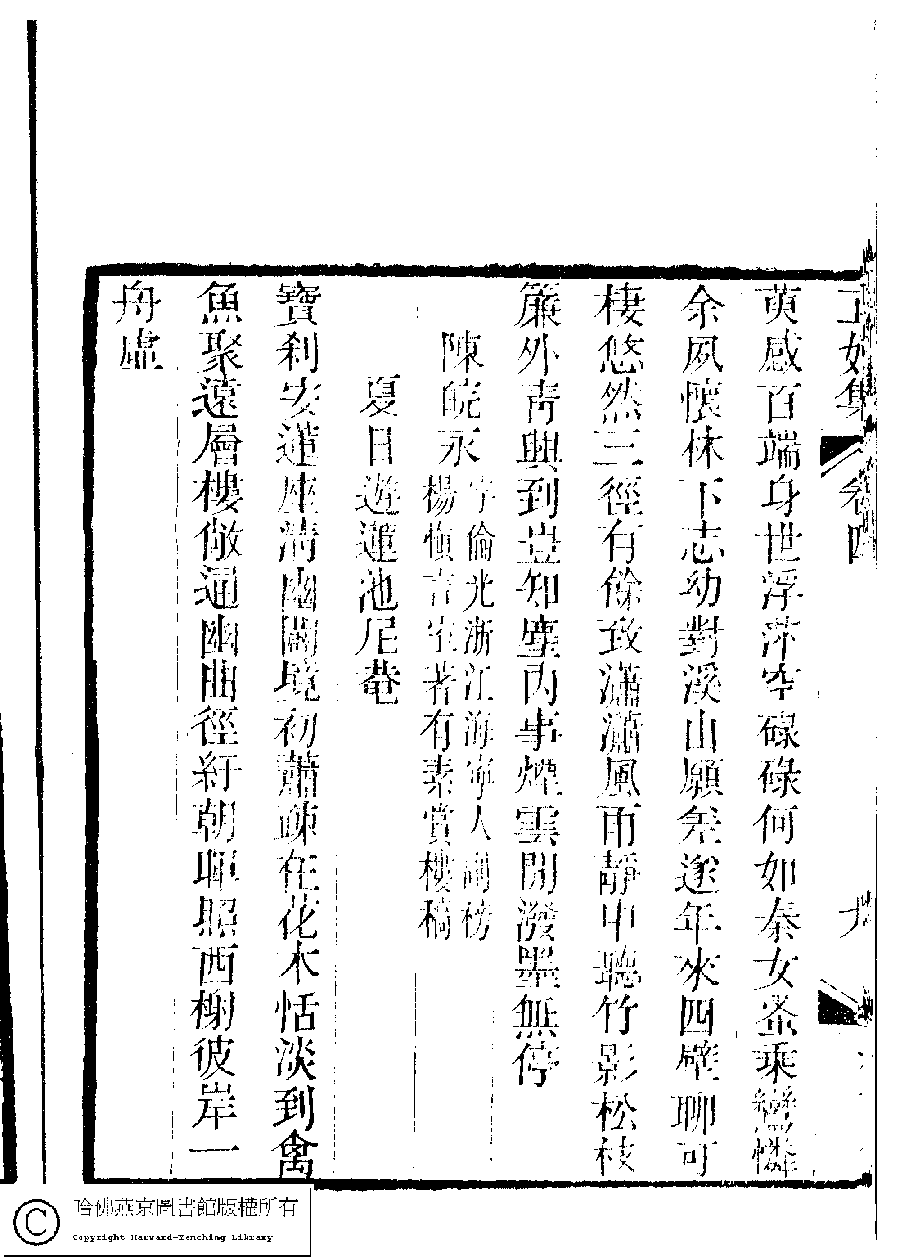 玉如集 卷四 九
萸感百端身世浮萍空碌碌何如秦女蚤乘鸞憐
余夙懷林下志幼對溪山願差遂年來四壁聊可
棲悠然三徑有餘致瀟瀟風雨靜中聽竹影松枝
簾外靑興到豈知塵內事煙雲閒潑墨無停
陳皖永
字倫光浙江海寧人副榜
楊愼言室著有素賞樓稿
夏日遊蓮池尼菴
寶刹安蓮座淸幽闢境初蕭疎在花木恬淡到禽
魚聚遠層樓敞通幽曲徑紆朝暉照西榭彼岸一
舟虛
哈佛燕京圖書館版權所有
Copyright Harvard-Yenching Library